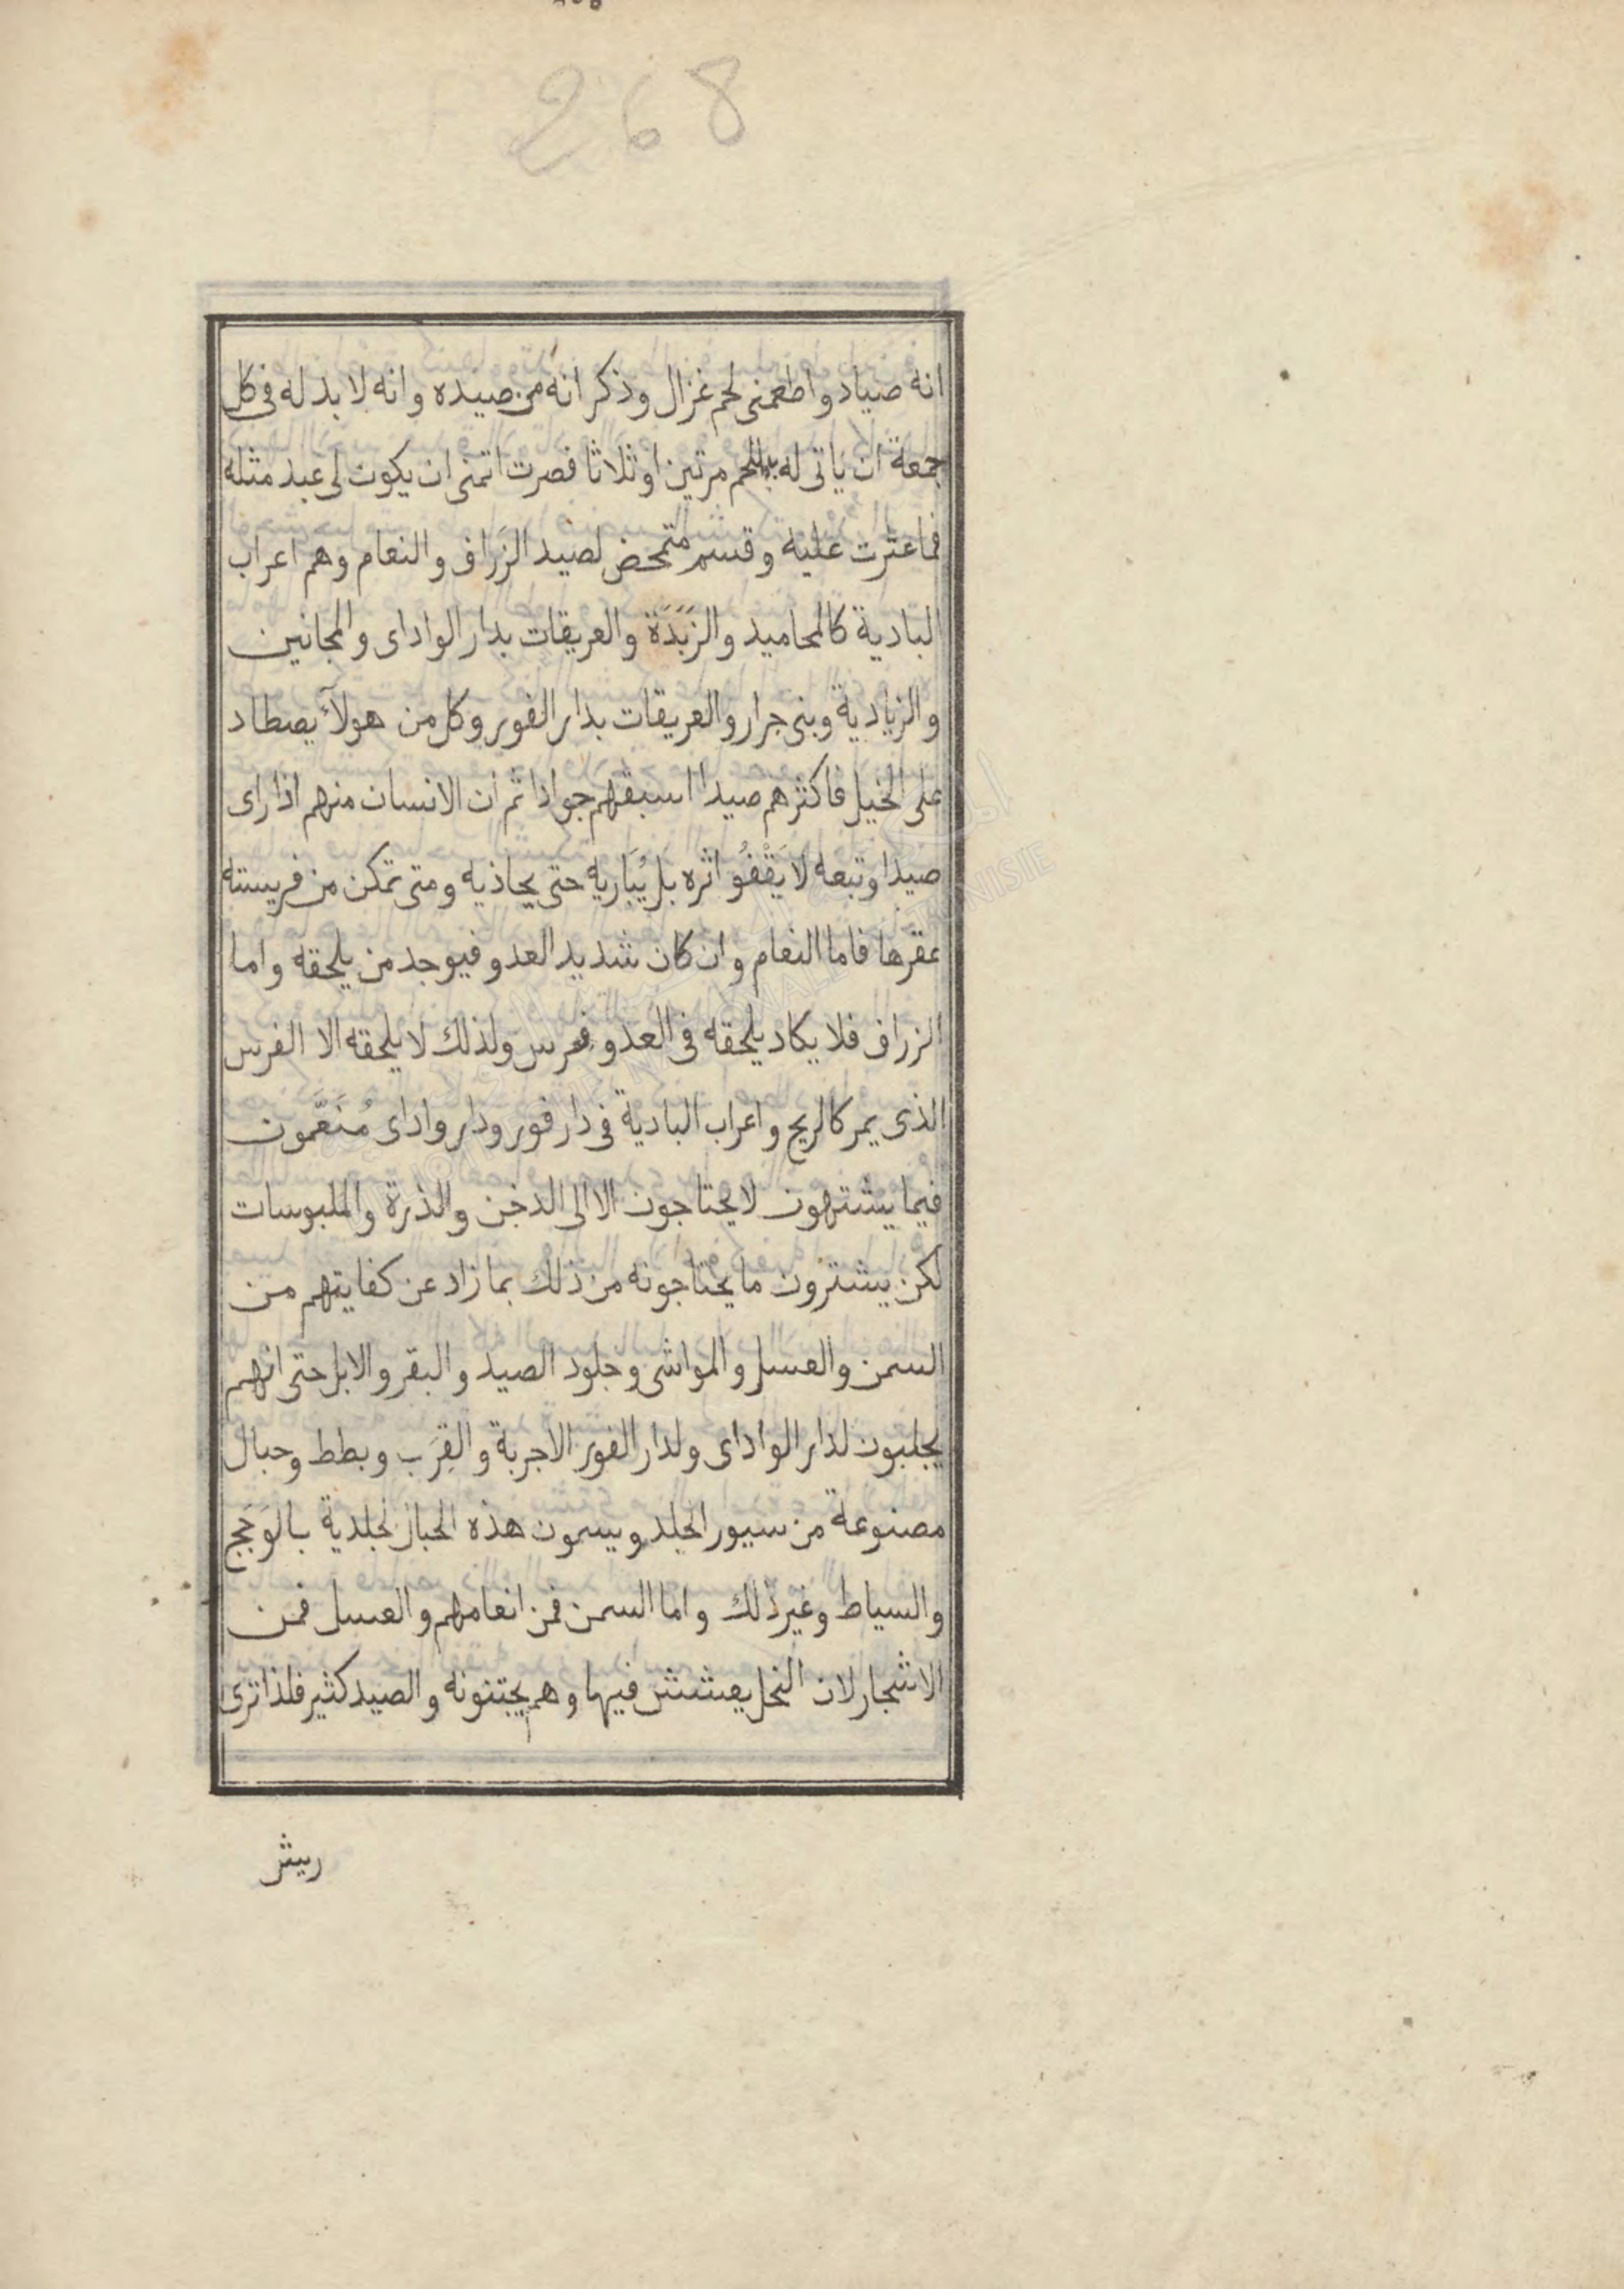 268
انه صياد واطعمنى لحم غزال وذكر انه من صيده وانه لا بد له فى كل
جمعة ان ياتى له بلحم مرتين او ثلاثا فصرت اتمنى ان يكون لى عبد مثله
فما عثرت عليه وقسم متمحض لصيد الزراف والنعام وهم اعراب
البادية كالمحاميد والزَبَدَة والعريقات بدار الواداى والمجانين
والزيادية وبنى جرار والعريقات بدار الفور وكل من هولآء يصطاد
على الخيل فاكثرهم صيدا اسبقهم جوادا ثم ان الانسان منهم اذا راى
صيدا وتبعه لا يَقْفُو اثره بل يُبَاريه حتى يحاذيه ومتى تمكن من فريسته
عقرها فاما النعام وان كان شديد العدو فيوجد من يلحقه واما
الزراف فلا يكاد يلحقه فى العدو فرس ولذلك لا يلحقه الا الفرس
الذى يمر كالريح واعراب البادية فى دار فور ودار واداى مُنَعَّمون
فيما يشتهون لا يحتاجون الا الى الدخن والذرة والملبوسات
لكن يشترون ما يحتاجونه من ذلك بما زاد عن كفايتهم من
السمن والعسل والمواشى وجلود الصيد والبقر والابل حتى انهم
يجلبون لدار الواداى ولدار الفور الاجربة والقِرَب وبطط وحبال
مصنوعة من سيور الجلد ويسمون هذه الحبال الجلدية بالوَجَج
والسياط وغير ذلك واما السمن فمن انعامهم والعسل فمن
الاشجار لان النحل يعشش فيها وهم يجتنونه والصيد كثير فلذا ترى
ريش